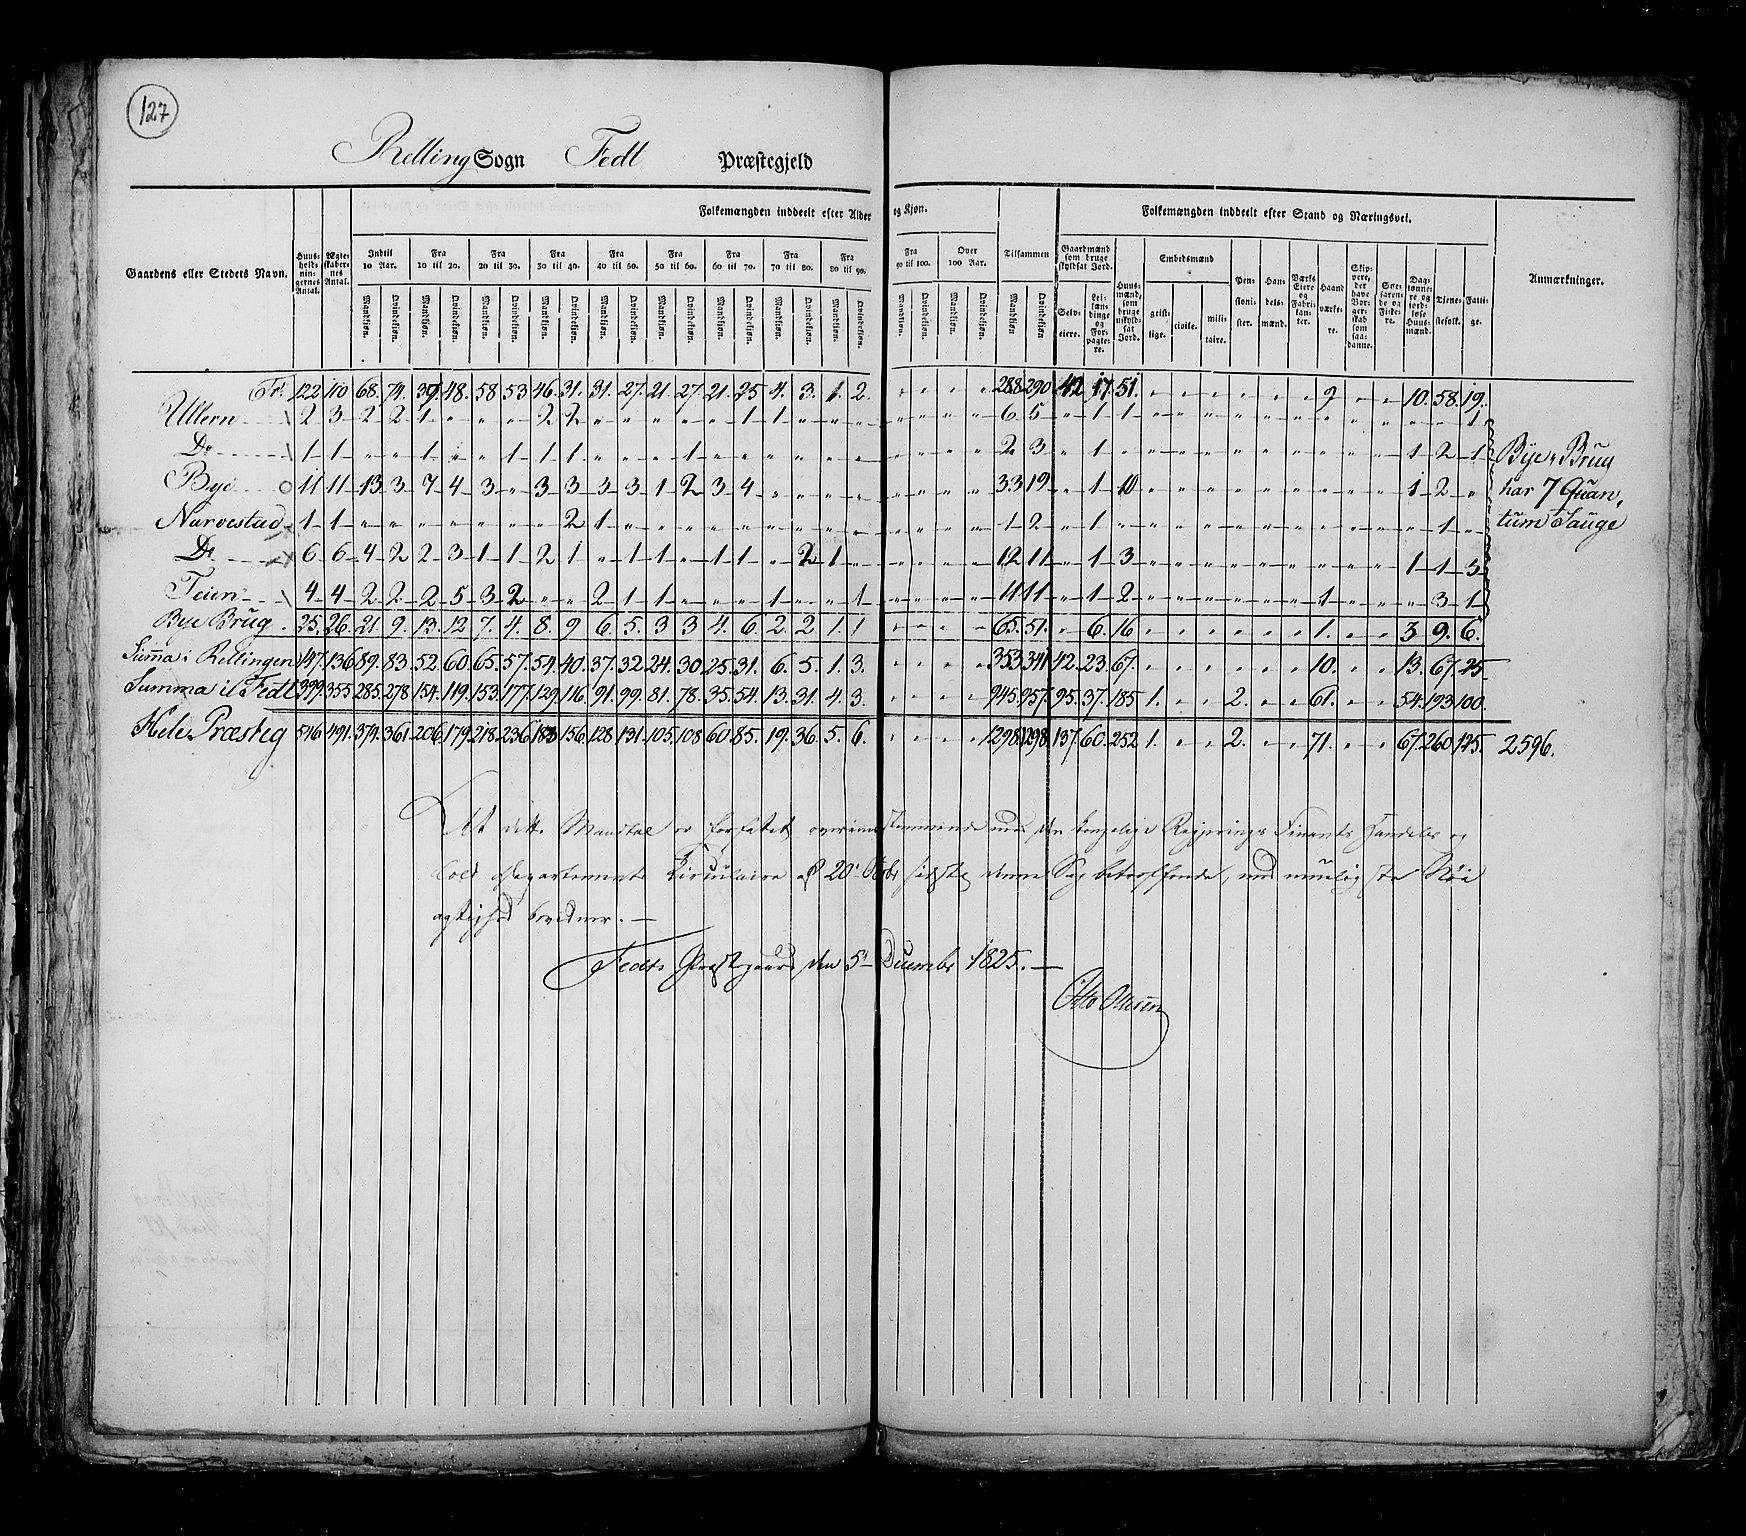 127
Relling Sogn Fedt Præstegjeld
Folkemængden inddeelt efter Alder og Kjøn. Folkemængden inddeelt efter Stand og Næringsvei.
Gaardens eller Stedets Navn. Huusholdningernes Antal. Ægteskabernes Antal. Indtil 10 Aar. Fra 10 til 20. Fra 20 til 30. Fra 30 til 40. Fra 40 til 50. Fra 50 til 60. Fra 60 til 70. Fra 70 til 80. Fra 80 til 90. Fra 90 til 100. Over 100 Aar. Tilsammen Gaardmænd som bruge skyldsat Jord. Huusmænd, som bruge uskyldsat Jord. Embedsmænd Pensionister. Handelsmænd. Værkseiere og Fabrikanter. Haandværkere. Skippere, der have Borgerskab som saadanne. Søefarende og Fiskere. Dagslønnere og jordløse Huusmænd. Tjenestefolk. Fattige. Anmærkninger.
Mandkjøn. Qvindekjøn. Selveiere. Leilændinge og Forpagtere. geistlige. civile. militaire.
Tr. 122 110 68. 74. 39. 48. 58 53 46. 31. 31. 27. 21. 27. 21. 25 4. 3. 1. 2. 288 290 42. 17. 51. 9 10. 58. 19.
Ullern 2 3 2 2 1 2 2 1 1 1 6 5 1 1 1
Do 1 1 1 1 1 1 1 2 3 1 1 2 1 Bye Brug
Bye 11 11 13 3 7 4 3 3 3 3 3 1 2 3 4 33 19 1 10 1 2 har 7 Quan,
Narvestad 1 1 2 1 1 2 1 1 tum Sauge
Do 6 6 4 2 2 3 1 1 2 1 1 1 1 1 2 1 12 11 1 3 1 1 3
Teien 4 4 2 2 2 5 3 2 2 1 1 1 1 11 11 1 2 1 3 1
Bye Brug. 25. 26. 21 9. 13. 12 7. 4. 8. 9 6. 5. 3 3 4. 6 2. 2 1. 1 65. 51. 6. 16 1. 3 9. 6.
Summa i Rellingen 147. 136 89. 83. 52. 60. 65. 57. 54. 40. 37. 32 24. 30 25. 31. 6. 5. 1. 3. 353. 341 42. 23. 67. 10. 13. 67. 25
Summa i Fedt 399. 355 285. 278 154. 119. 153. 177. 129. 116. 91. 99. 81. 78. 35. 54. 13. 31. 4. 3. 945. 957. 95. 37. 185 1. 2. 61. 54. 193 100.
Hele Præsteg 546. 491. 374. 361. 206. 179. 218. 236 183 156. 128 131. 105. 108 60. 85. 19. 36. 5. 6. 1298. 1298. 137. 60. 252 1. 2. 71. 67. 260 125. 2596.
At dette Mandtal er forfattet overeensstemmende med den kongelige Regjerings Finants Handels og
Told Departements Circulaire af 20 Octbr sidste denne Sag betræffende, med muligste Nøi
agtighed bevidner. —
Fedts Præstegaard den 5t December 1825. —
Otto Ottesen